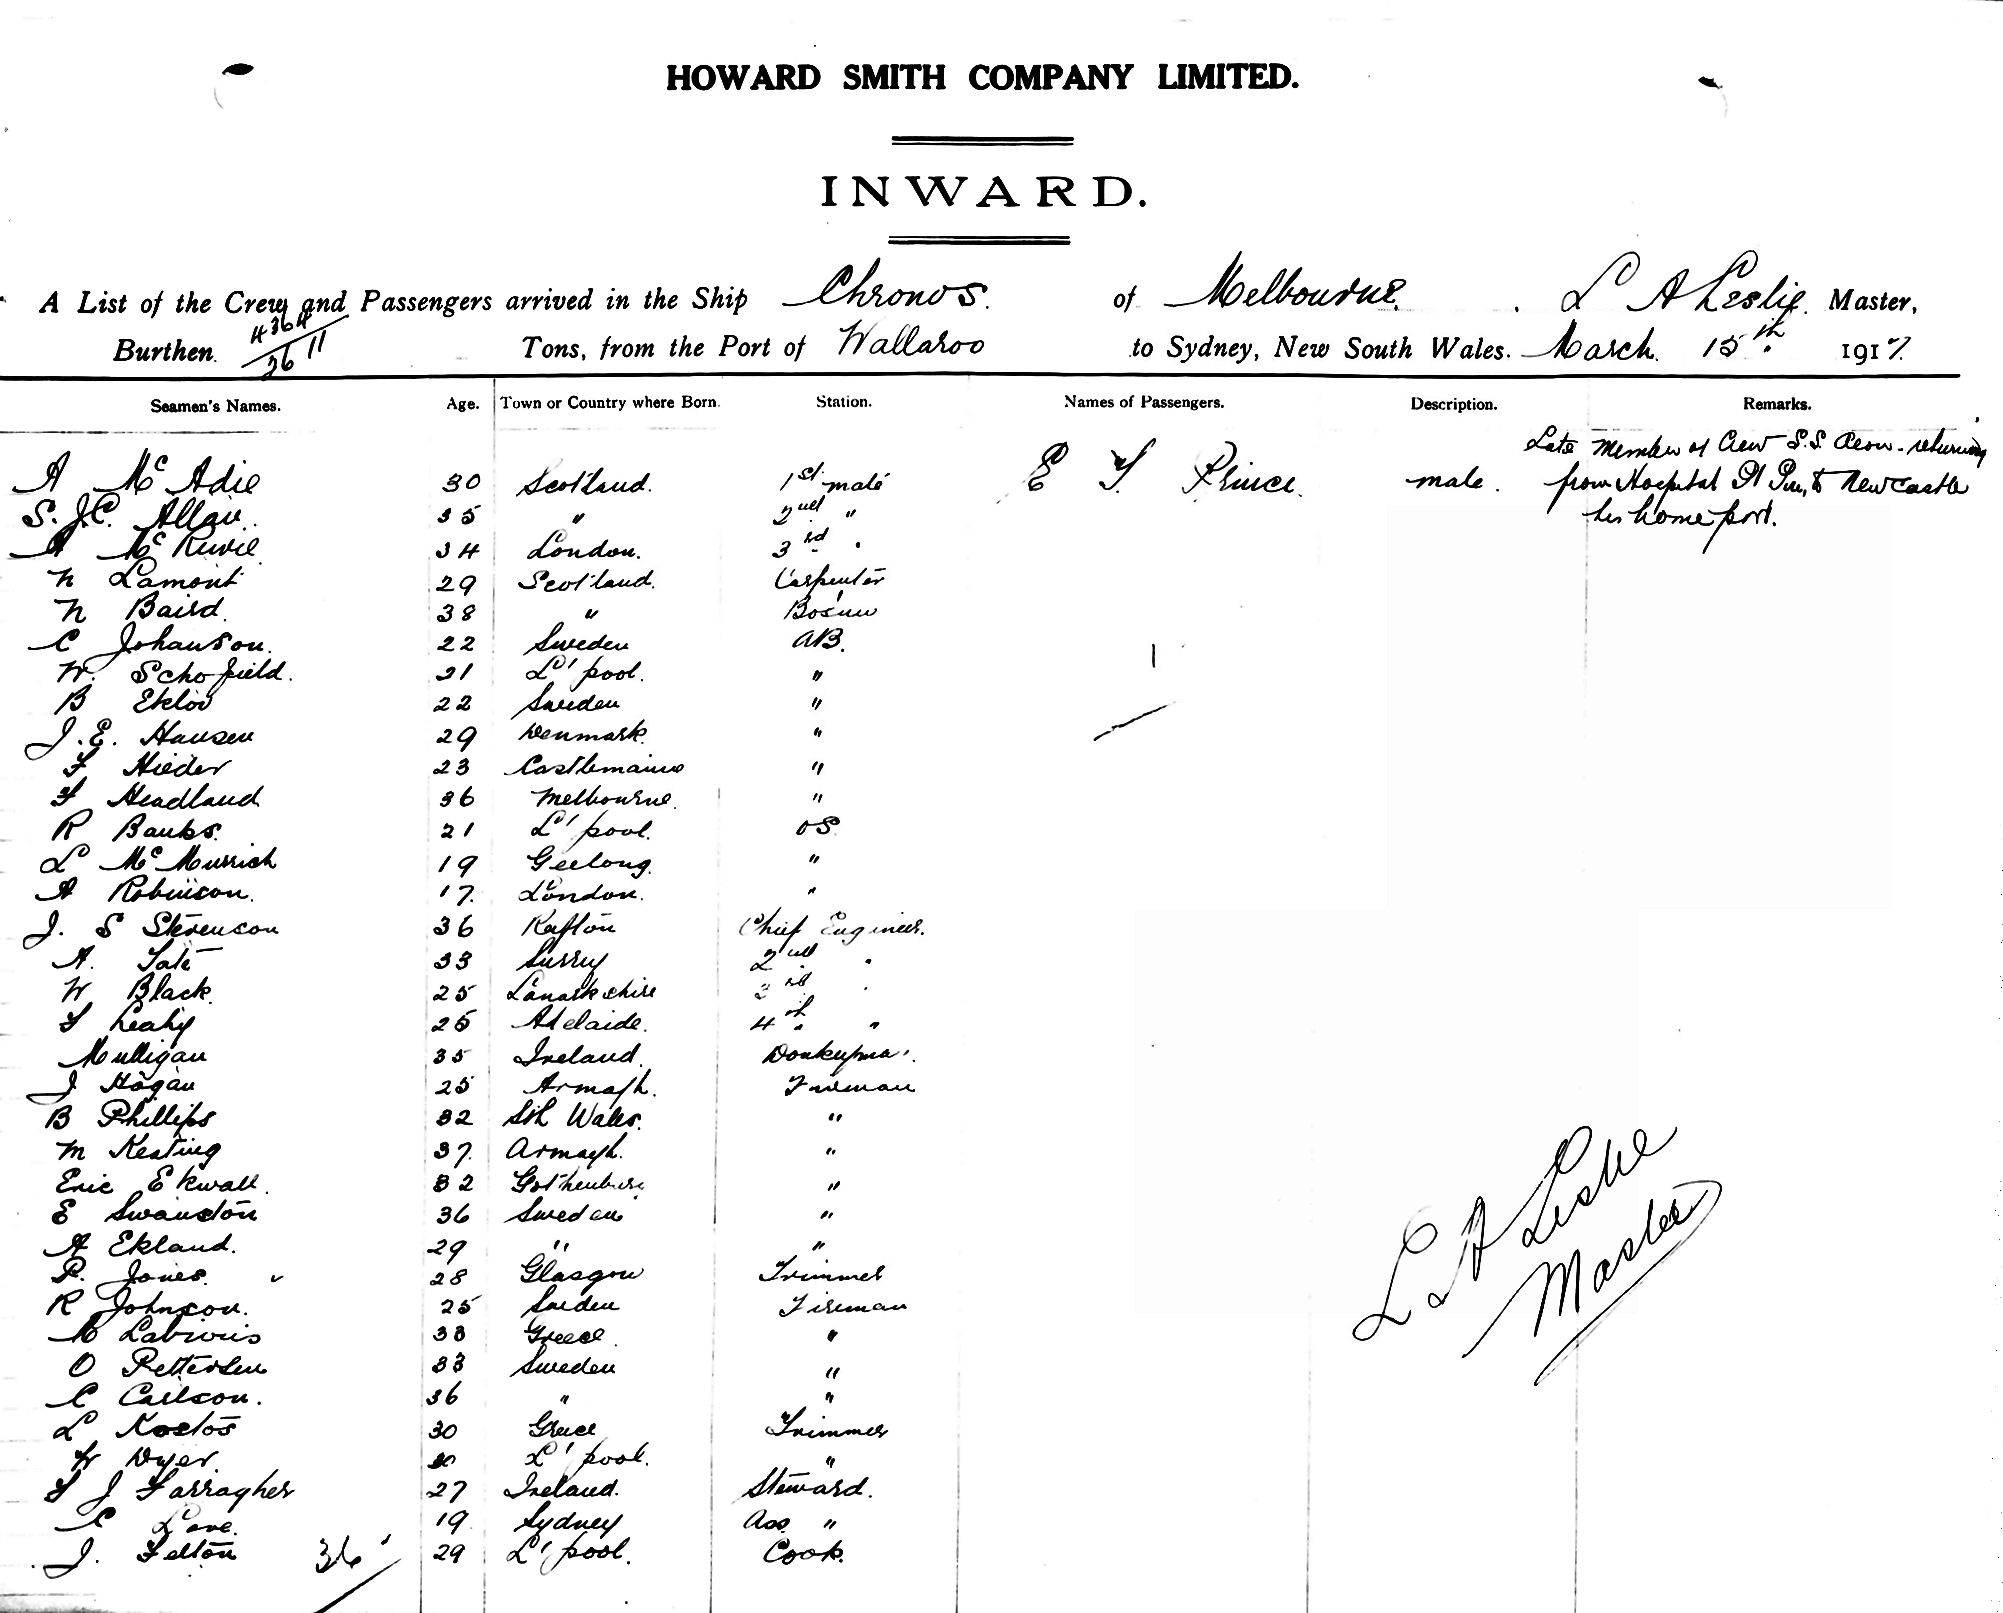 HOWARD SMITH COMPANY LIMITED.
INWARD.
A List of the Crew and Passengers arrived in the Ship Chronos. of Melbourne. L A Leslie. Master,
Burthen 4364/2611 Tons, from the Port of Wallaroo to Sydney, New South Wales. March. 15th. 1917.
Seamen's Names. Age. Town or Country where Born. Station. Names of Passengers. Description. Remarks.
Late member of Crew S.S. Aeon. returning
A Mc Adie 30 Scotland. 1st mate E F Prince. male. from Hospital Pt Pirie, to Newcastle
S. J.C. Allan. 35 " 2nd " his home port.
A Mc 34 London. 3rd "
N Lamont 29 Scotland. Carpenter
N Baird. 38 " Bos'un
C Johanson. 22 Sweden AB.
W. Schofield. 21 L'pool. "
B Eklov 22 Sweden "
J. E. Hansen 29 Denmark. "
F Hieder 23 Castlemaine "
F Headland 36 Melbourne. "
R Banks. 21 L'pool. OS.
L Mc Murrich 19 Geelong. "
A Robinson. 17. London. "
J. S Stevenson 36 Chief Engineer.
A. Tate 33 Surrey 2nd "
W Black. 25 Lanarkshire 3rd "
F Leahy 26 Adelaide. 4th "
Mulligan 35 Ireland. Donkeyman.
J Hogan 25 Armagh. Fireman
B Phillips 32 Sth Wales. "
M Keating 37. Armagh. "
Eric Ekwall. 32 Gothenburg "
E Swanston 36 Sweden "
A Ekland. 29 " "
P. Jones. 28 Glasgow Trimmer
R Johnson. 25 Sweden Fireman
33 Greece "
O Pettersen 33 Sweden "
C Carlson. 36 " "
L Kostos 30 Greece Trimmer
W Dyer. 20 L'pool. "
F J Farragher 27 Ireland. Steward.
C Love. 19 Sydney Ass. "
J. Felton 36 29 L'pool. Cook.
L A Leslie
Master